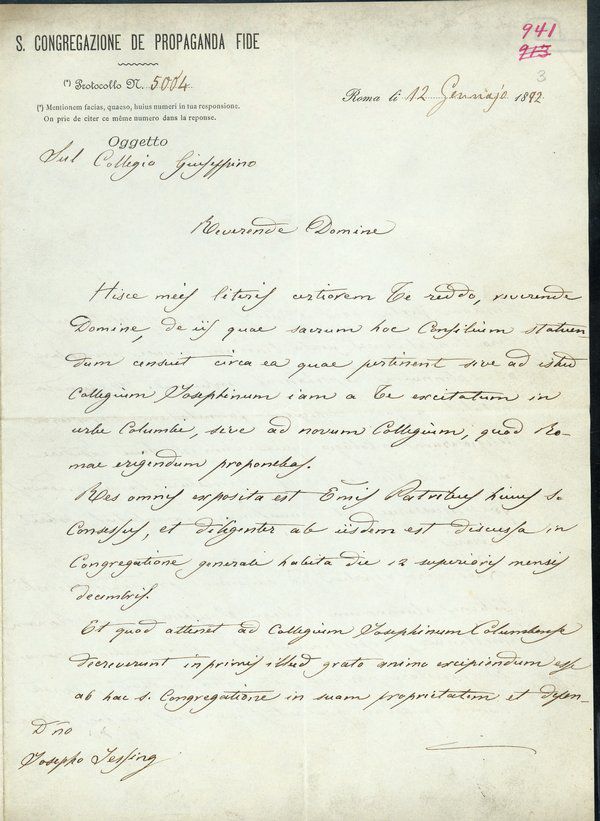 S. CONGREGAZIONE DE PROPAGANDA FIDE
941
913
3
(*) Protocollo N. 5004
Roma li 12 Gennajo 1892
(*) Mentionem facias, quaeso, huius numeri in tua responsione.
On prie de citer ce même numero dans la reponse.
Oggetto
Sul Collegio Giuseppino
Reverende Domine
Hisce meis literis certiorem Te reddo, reverende
Domine, de iis quae sacrum hoc Consilium statuen-
dum censuit circa ea quae pertinent sive ad istud
Collegium Josephinum iam a Te excitatum in
urbe Columbi, sive ad novum Collegium, quod Ro-
mae erigendum proponebas.
Res omnis exposita est Emis Patribus huius s.
Consessus, et diligenter ab iisdem est discussa in
Congregatione generali habita die 12 superioris mensis
decembris.
Et quod attinet ad Collegium Josephinum Columbense
decreverunt in primis illud grato animo excipiendum esse
ab hac s. Congregatione in suam proprietatem et depen-
Dno
Josepho Jessing